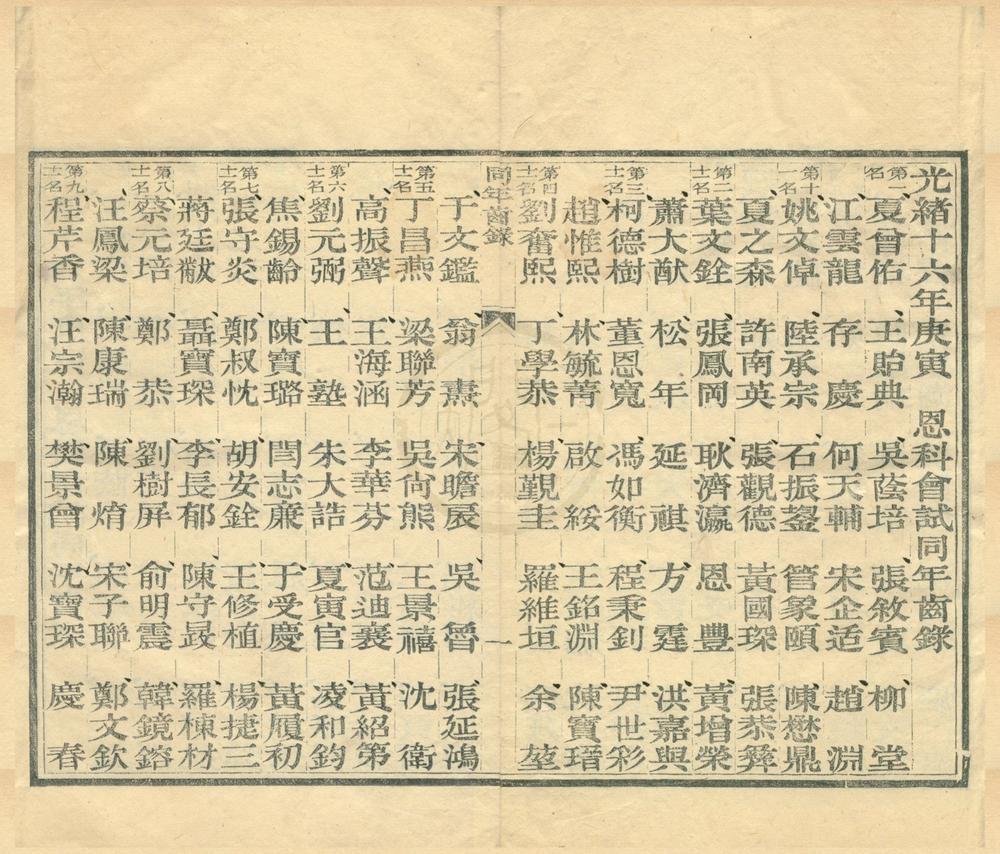 光緒十六年庚寅　恩科會試同年齒錄
第一名　夏曾佑　王貽典　吳蔭培　張敘賓　柳堂
江雲龍　存慶　何天輔　宋企适　趙淵
第十一名　姚文倬　陸承宗　石振鋆　管象頤　陳懋鼎
夏之森　許南英　張觀德　黃國琛　張恭彝
第二十名　葉文銓　張鳳岡　耿濟瀛　恩豐　黃增榮
蕭大猷　松年　延祺　方霆　洪嘉與
第三十名　柯德樹　董恩寬　馮如衡　程秉釗　尹世彩
趙惟熙　林毓菁　啟綏　王銘淵　陳寶瑨
第四十名　劉奮熙　丁學恭　楊覲圭　羅維垣　余堃
同年齒錄　一
于文鑑　翁燾　宋瞻扆　吳魯　張延鴻
第五十名　丁昌燕　梁聯芳　吳尙熊　王景禧　沈衛
高振聲　王海涵　李華芬　范迪襄　黃紹第
第六十名　劉元弼　王塾　朱大誥　夏寅官　凌和鈞
焦錫齡　陳寶璐　閆志廉　于受慶　黃履初
第七十名　張守炎　鄭叔忱　胡安銓　王修植　楊捷三
蔣廷黻　聶寶琛　李長郁　陳守晸　羅棟材
第八十名　蔡元培　鄭恭　劉樹屏　俞明震　韓鏡鎔
汪鳳梁　陳康瑞　陳焴　宋子聯　鄭文欽
第九十名　程芹香　汪宗瀚　樊景曾　沈寶琛　慶春